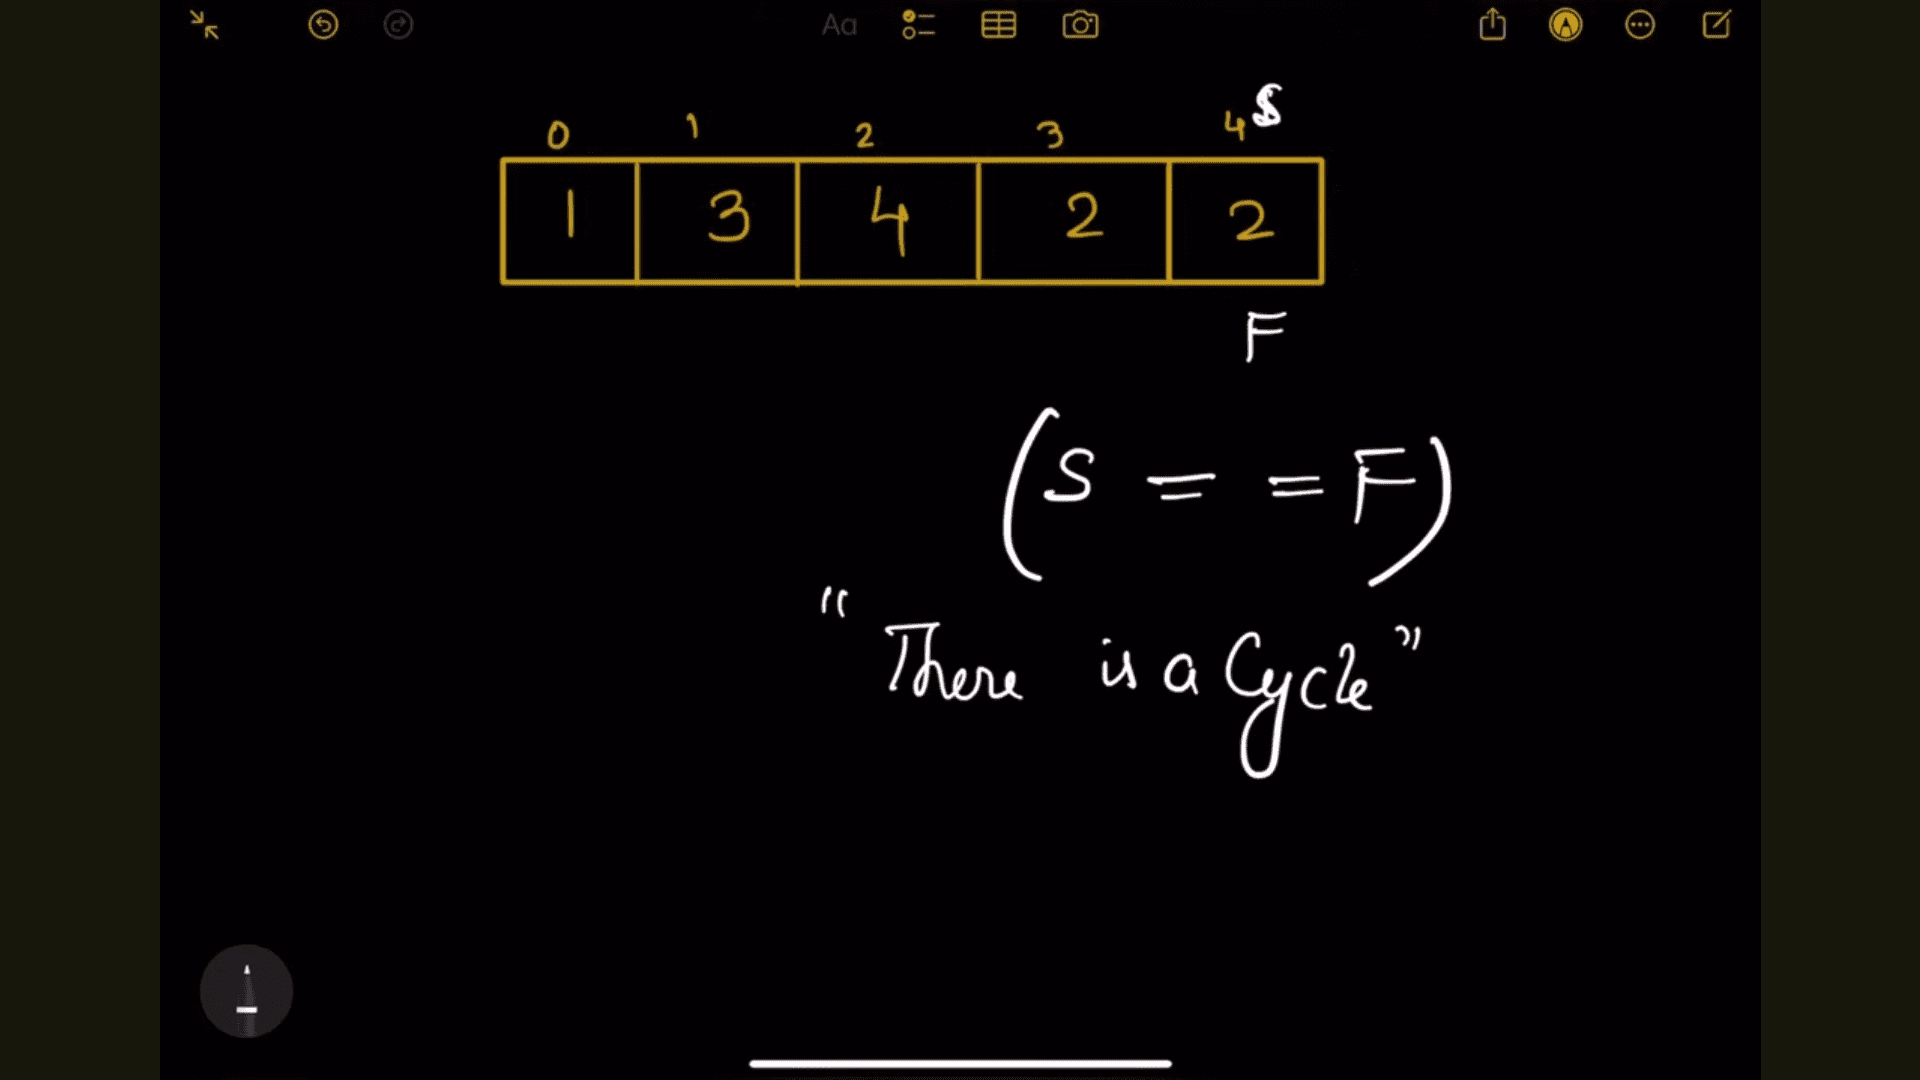 Aa
0 1 2 3 4 S
1 3 4 2 2
F
(S = = F)
"There is a Cycle"